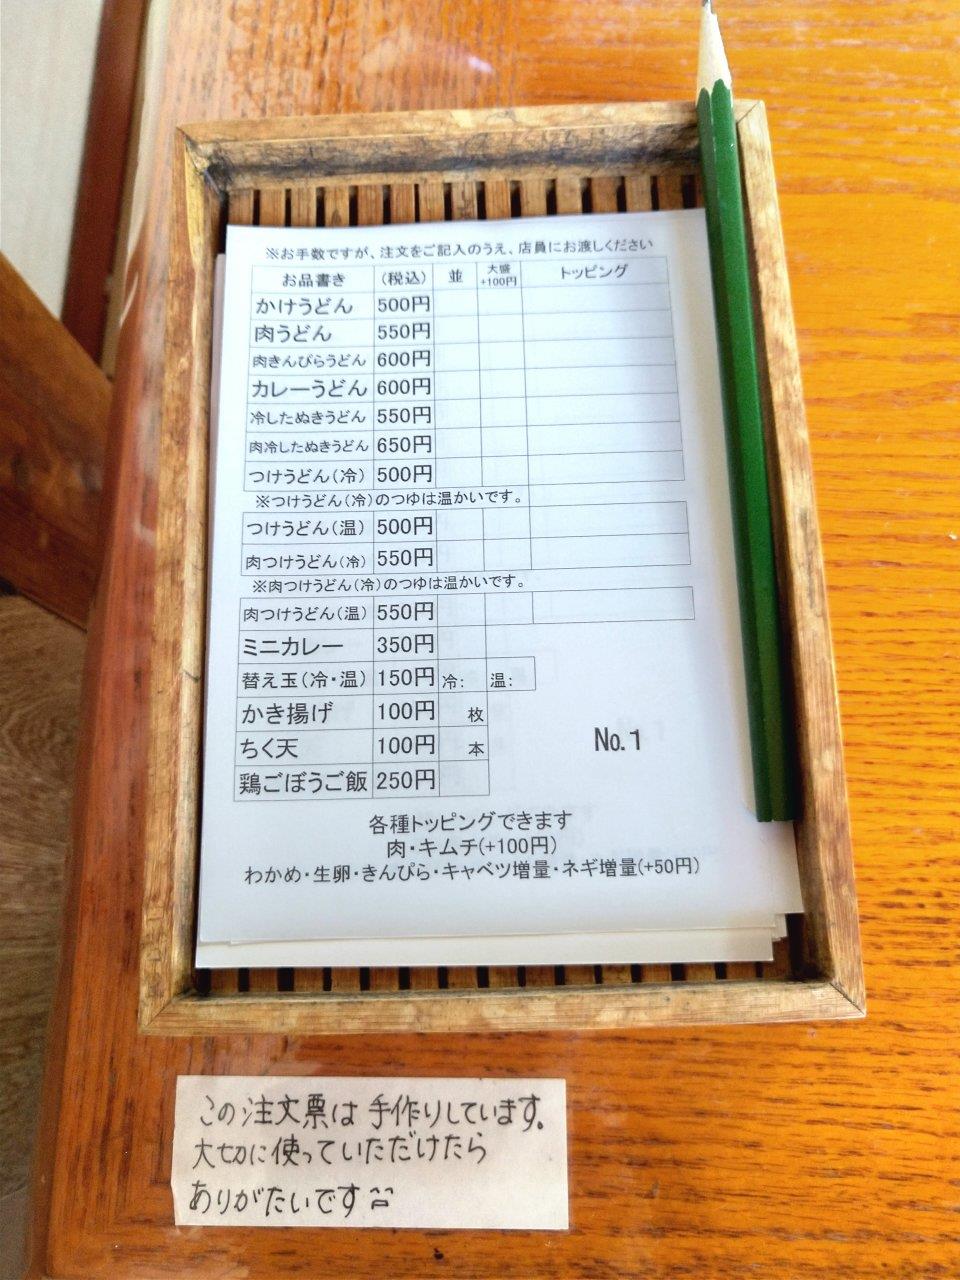 ※お手数ですが、注文をご記入のうえ、店員にお渡しください
お品書き (税込) 並 大盛+100円 トッピング
かけうどん 500円
肉うどん 550円
肉きんぴらうどん 600円
カレーうどん 600円
冷したぬきうどん 550円
肉冷したぬきうどん 650円
つけうどん(冷) 500円
※つけうどん(冷)のつゆは温かいです。
つけうどん(温) 500円
肉つけうどん(冷) 550円
※肉つけうどん(冷)のつゆは温かいです。
肉つけうどん(温) 550円
ミニカレー 350円
替え玉(冷・温) 150円 冷: 温:
かき揚げ 100円 枚
ちく天 100円 本
鶏ごぼうご飯 250円
No.1
各種トッピングできます
肉・キムチ(+100円)
わかめ・生卵・きんぴら・キャベツ増量・ネギ増量(+50円)
この注文票は手作りしています。
大切に使っていただけたら
ありがたいです